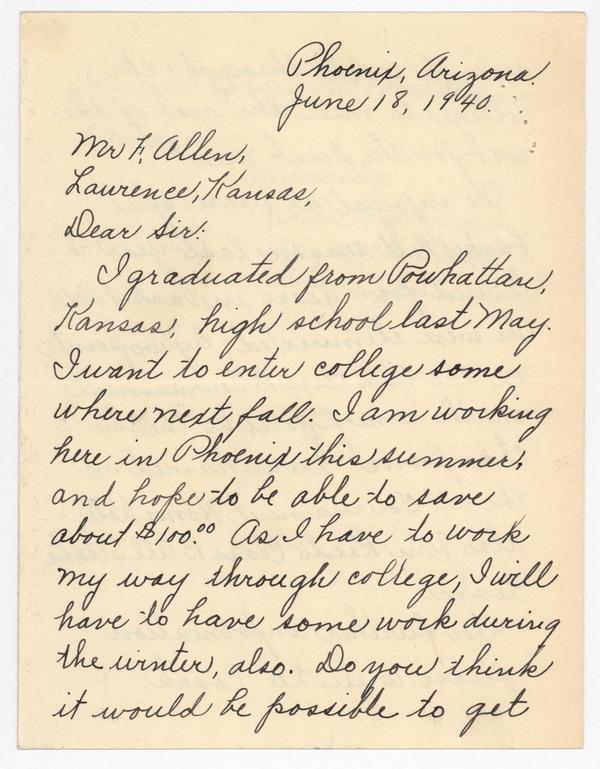 Phoenix, Arizona.
June 18, 1940.
Mr F. Allen,
Lawrence, Kansas,
Dear Sir:
I graduated from Powhattan,
Kansas, high school last May.
I want to enter college some
where next fall. I am working
here in Phoenix this summer,
and hope to be able to save
about $100.00 As I have to work
my way through college, I will
have to have some work during
the winter, also. Do you think
it would be possible to get